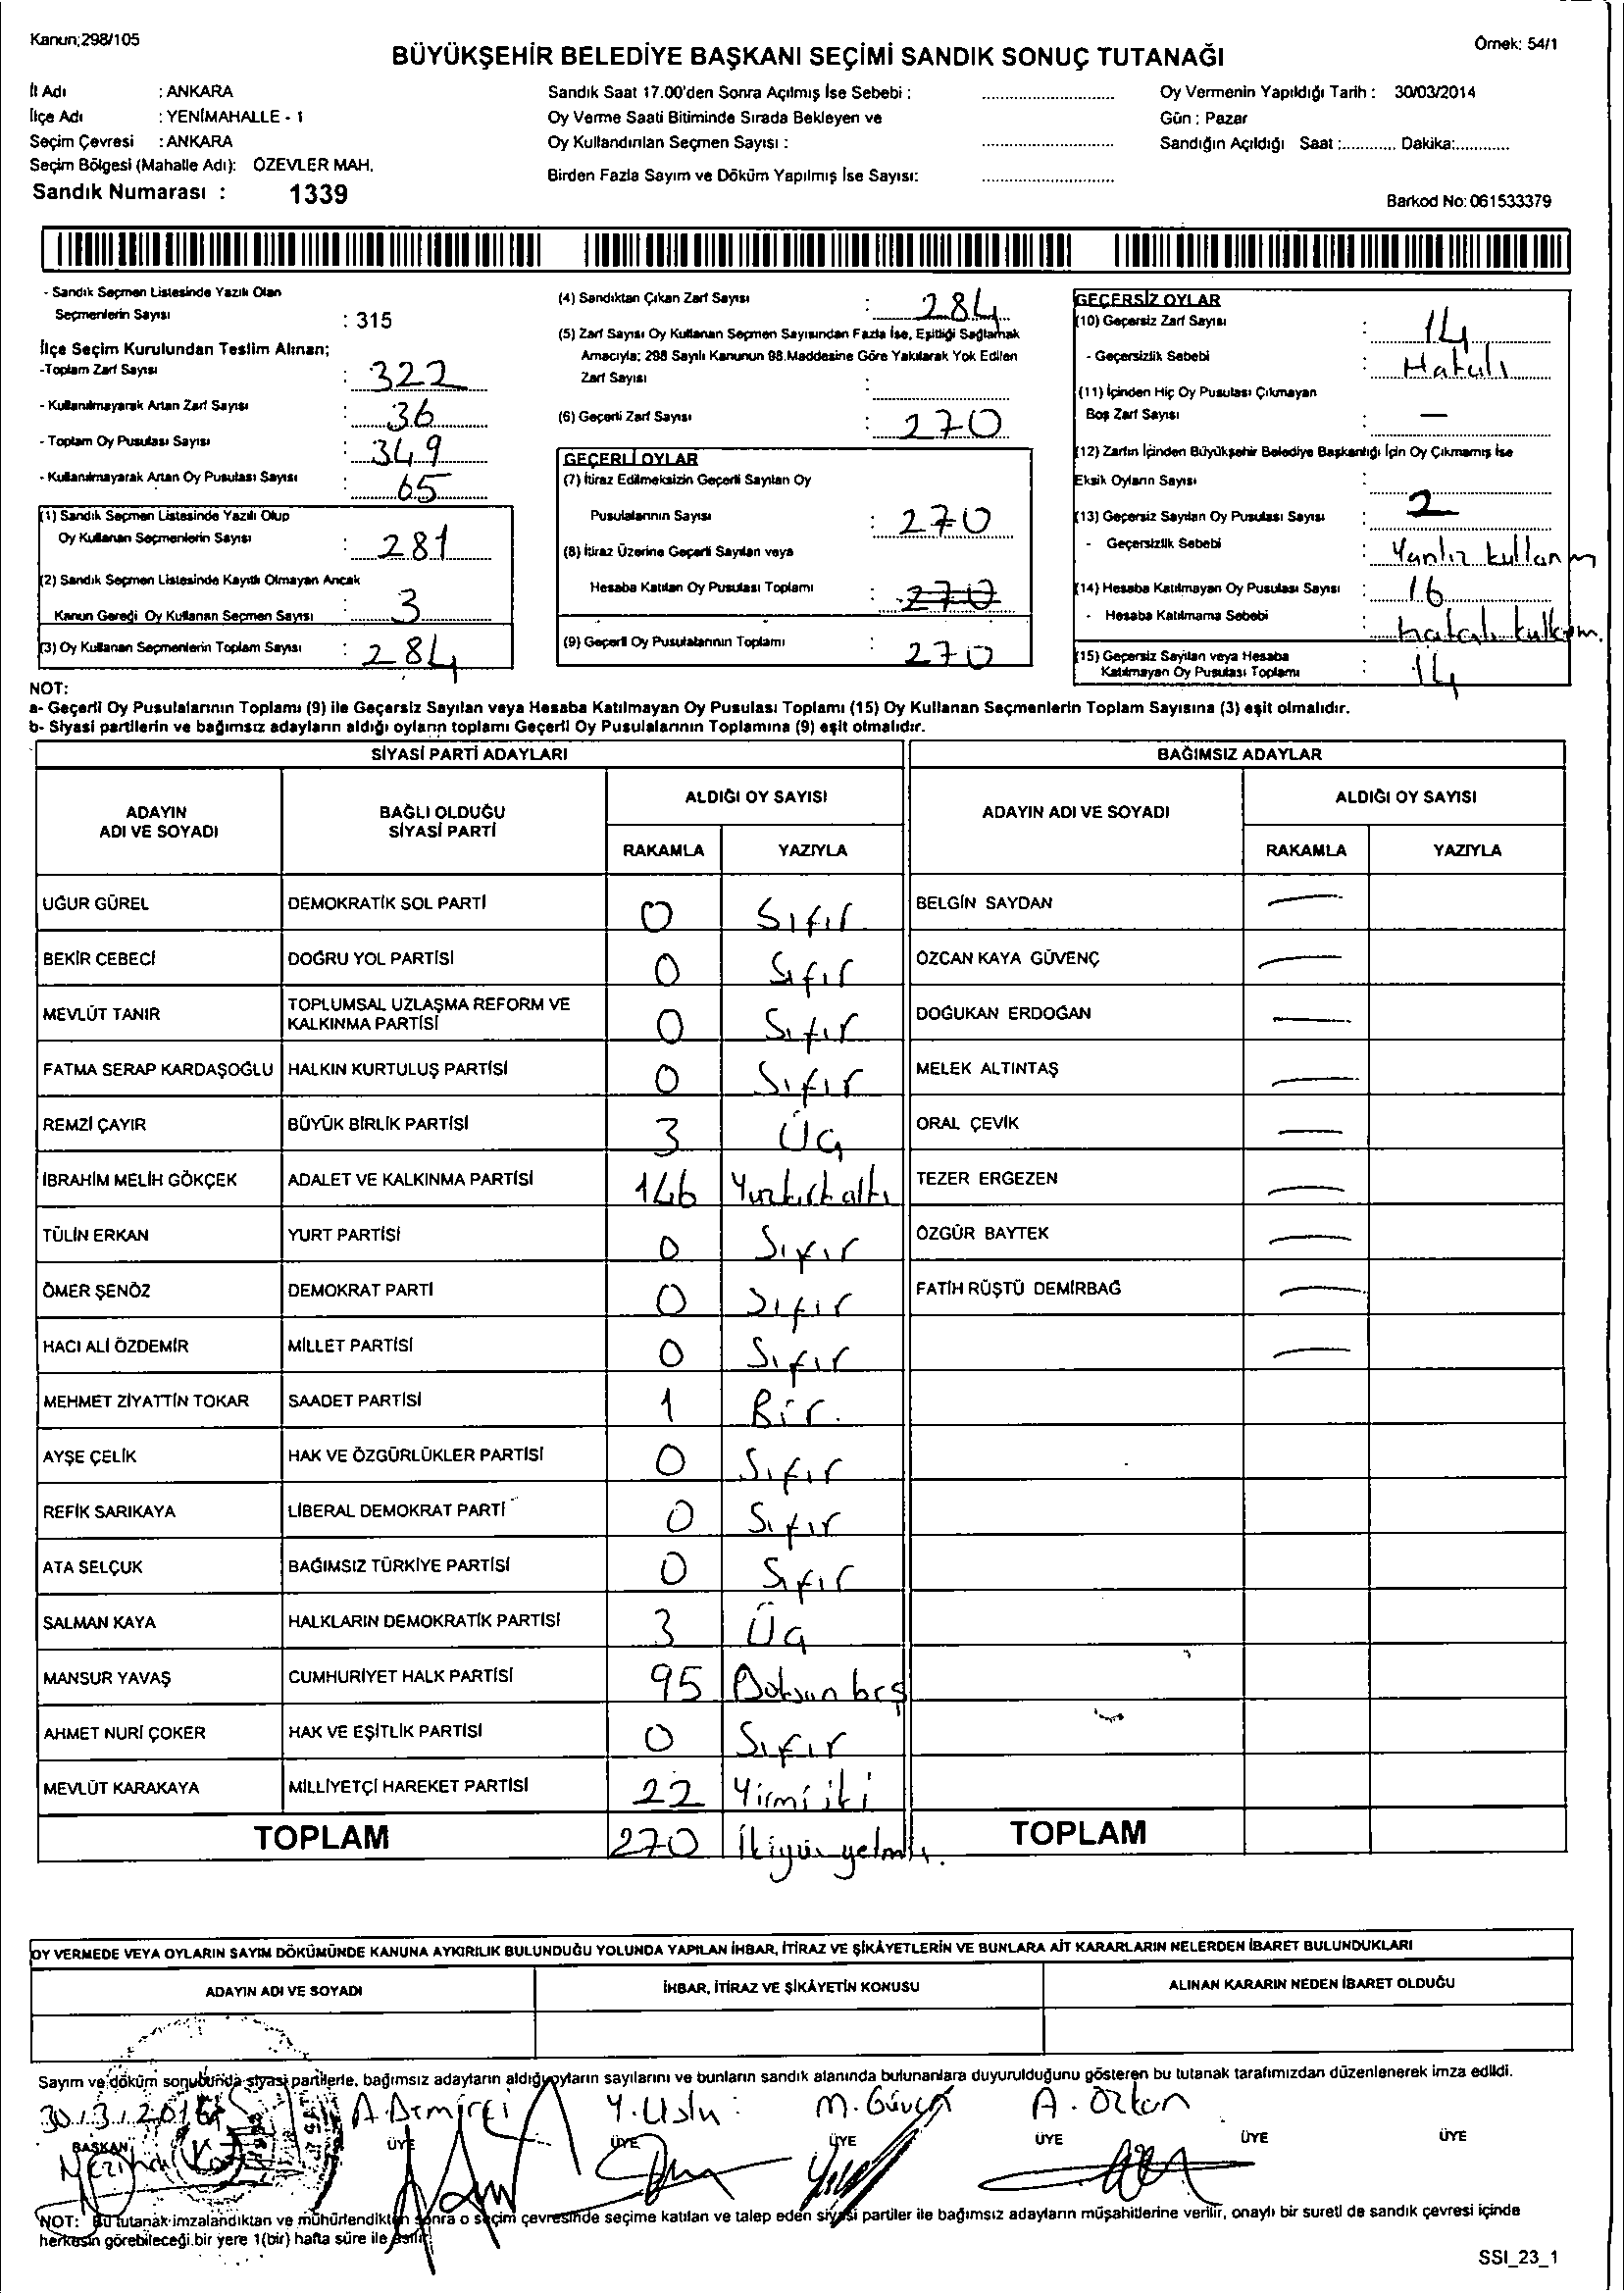 Kanun;298/105
Örnek: 54/1
BÜYÜKŞEHİR BELEDİYE BAŞKANI SEÇİMİ SANDIK SONUÇ TUTANAĞI
İl Adı : ANKARA
İlçe Adı : YENİMAHALLE - 1
Seçim Çevresi : ANKARA
Seçim Bölgesi (Mahalle Adı): ÖZEVLER MAH.
Sandık Numarası : 1339
Sandık Saat 17.00'den Sonra Açılmış İse Sebebi :
Oy Verme Saati Bitiminde Sırada Bekleyen ve
Oy Kullandırılan Seçmen Sayısı :
Birden Fazla Sayım ve Döküm Yapılmış İse Sayısı:
Oy Vermenin Yapıldığı Tarih : 30/03/2014
Gün : Pazar
Sandığın Açıldığı Saat :............ Dakika:............
Barkod No: 061533379
- Sandık Seçmen Listesinde Yazılı Olan
Seçmenlerin Sayısı : 315
İlçe Seçim Kurulundan Teslim Alınan;
-Toplam Zarf Sayısı : 322
- Kullanılmayarak Artan Zarf Sayısı : 36
- Toplam Oy Pusulası Sayısı : 349
- Kullanılmayarak Artan Oy Pusulası Sayısı : 65
(1) Sandık Seçmen Listesinde Yazılı Olup
Oy Kullanan Seçmenlerin Sayısı : 281
(2) Sandık Seçmen Listesinde Kayıtlı Olmayan Ancak
Kanun Gereği Oy Kullanan Seçmen Sayısı : 3
(3) Oy Kullanan Seçmenlerin Toplam Sayısı : 284
(4) Sandıktan Çıkan Zarf Sayısı : 284
(5) Zarf Sayısı Oy Kullanan Seçmen Sayısından Fazla İse, Eşitliği Sağlamak
Amacıyla; 298 Sayılı Kanunun 98.Maddesine Göre Yakılarak Yok Edilen
Zarf Sayısı :
(6) Geçerli Zarf Sayısı : 270
GEÇERLİ OYLAR
(7) İtiraz Edilmeksizin Geçerli Sayılan Oy
Pusulalarının Sayısı : 270
(8) İtiraz Üzerine Geçerli Sayılan veya
Hesaba Katılan Oy Pusulası Toplamı : 270
(9) Geçerli Oy Pusulalarının Toplamı : 270
GEÇERSİZ OYLAR
(10) Geçersiz Zarf Sayısı : 14
- Geçersizlik Sebebi : Hatalı
(11) İçinden Hiç Oy Pusulası Çıkmayan
Boş Zarf Sayısı : —
(12) Zarfın İçinden Büyükşehir Belediye Başkanlığı İçin Oy Çıkmamış İse
Eksik Oyların Sayısı : 2
(13) Geçersiz Sayılan Oy Pusulası Sayısı :
- Geçersizlik Sebebi : Yanlız kullanım
(14) Hesaba Katılmayan Oy Pusulası Sayısı : 16
- Hesaba Katılmama Sebebi : hatalı kullanım.
(15) Geçersiz Sayılan veya Hesaba
Katılmayan Oy Pusulası Toplamı : 14
NOT:
a- Geçerli Oy Pusulalarının Toplamı (9) ile Geçersiz Sayılan veya Hesaba Katılmayan Oy Pusulası Toplamı (15) Oy Kullanan Seçmenlerin Toplam Sayısına (3) eşit olmalıdır.
b- Siyasi partilerin ve bağımsız adayların aldığı oyların toplamı Geçerli Oy Pusulalarının Toplamına (9) eşit olmalıdır.
SİYASİ PARTİ ADAYLARI BAĞIMSIZ ADAYLAR
ADAYIN ADI VE SOYADI BAĞLI OLDUĞU SİYASİ PARTİ ALDIĞI OY SAYISI ADAYIN ADI VE SOYADI ALDIĞI OY SAYISI
RAKAMLA YAZIYLA RAKAMLA YAZIYLA
UĞUR GÜREL DEMOKRATİK SOL PARTİ 0 Sıfır BELGİN SAYDAN —
BEKİR CEBECİ DOĞRU YOL PARTİSİ 0 Sıfır ÖZCAN KAYA GÜVENÇ —
MEVLÜT TANIR TOPLUMSAL UZLAŞMA REFORM VE KALKINMA PARTİSİ 0 Sıfır DOĞUKAN ERDOĞAN —
FATMA SERAP KARDAŞOĞLU HALKIN KURTULUŞ PARTİSİ 0 Sıfır MELEK ALTINTAŞ —
REMZİ ÇAYIR BÜYÜK BİRLİK PARTİSİ 3 Üç ORAL ÇEVİK —
İBRAHİM MELİH GÖKÇEK ADALET VE KALKINMA PARTİSİ 146 Yüzkırkaltı TEZER ERGEZEN —
TÜLİN ERKAN YURT PARTİSİ 0 Sıfır ÖZGÜR BAYTEK —
ÖMER ŞENÖZ DEMOKRAT PARTİ 0 Sıfır FATİH RÜŞTÜ DEMİRBAĞ —
HACI ALİ ÖZDEMİR MİLLET PARTİSİ 0 Sıfır —
MEHMET ZİYATTİN TOKAR SAADET PARTİSİ 1 Bir.
AYŞE ÇELİK HAK VE ÖZGÜRLÜKLER PARTİSİ 0 Sıfır
REFİK SARIKAYA LİBERAL DEMOKRAT PARTİ 0 Sıfır
ATA SELÇUK BAĞIMSIZ TÜRKİYE PARTİSİ 0 Sıfır
SALMAN KAYA HALKLARIN DEMOKRATİK PARTİSİ 3 Üç
MANSUR YAVAŞ CUMHURİYET HALK PARTİSİ 95 Doksan beş
AHMET NURİ ÇOKER HAK VE EŞİTLİK PARTİSİ 0 Sıfır
MEVLÜT KARAKAYA MİLLİYETÇİ HAREKET PARTİSİ 22 Yirmi iki
TOPLAM 270 İkiyüz yetmiş. TOPLAM
OY VERMEDE VEYA OYLARIN SAYIM DÖKÜMÜNDE KANUNA AYKIRILIK BULUNDUĞU YOLUNDA YAPILAN İHBAR, İTİRAZ VE ŞİKÂYETLERİN VE BUNLARA AİT KARARLARIN NELERDEN İBARET BULUNDUKLARI
ADAYIN ADI VE SOYADI İHBAR, İTİRAZ VE ŞİKÂYETİN KONUSU ALINAN KARARIN NEDEN İBARET OLDUĞU
Sayım ve döküm sonubunda siyasi partilerle, bağımsız adayların aldığı oyların sayılarını ve bunların sandık alanında bulunanlara duyurulduğunu gösteren bu tutanak tarafımızdan düzenlenerek imza edildi.
30.3.2014 A.Demirci Y.Uslu M.Güven A.Özkan
BAŞKAN ÜYE ÜYE ÜYE ÜYE ÜYE ÜYE
NOT: Bu tutanak imzalandıktan ve mühürlendikten sonra o seçim çevresinde seçime katılan ve talep eden siyasi partiler ile bağımsız adayların müşahitlerine verilir, onaylı bir sureti de sandık çevresi içinde
herkesin görebileceği bir yere 1(bir) hafta süre ile asılır.
SSI_23_1